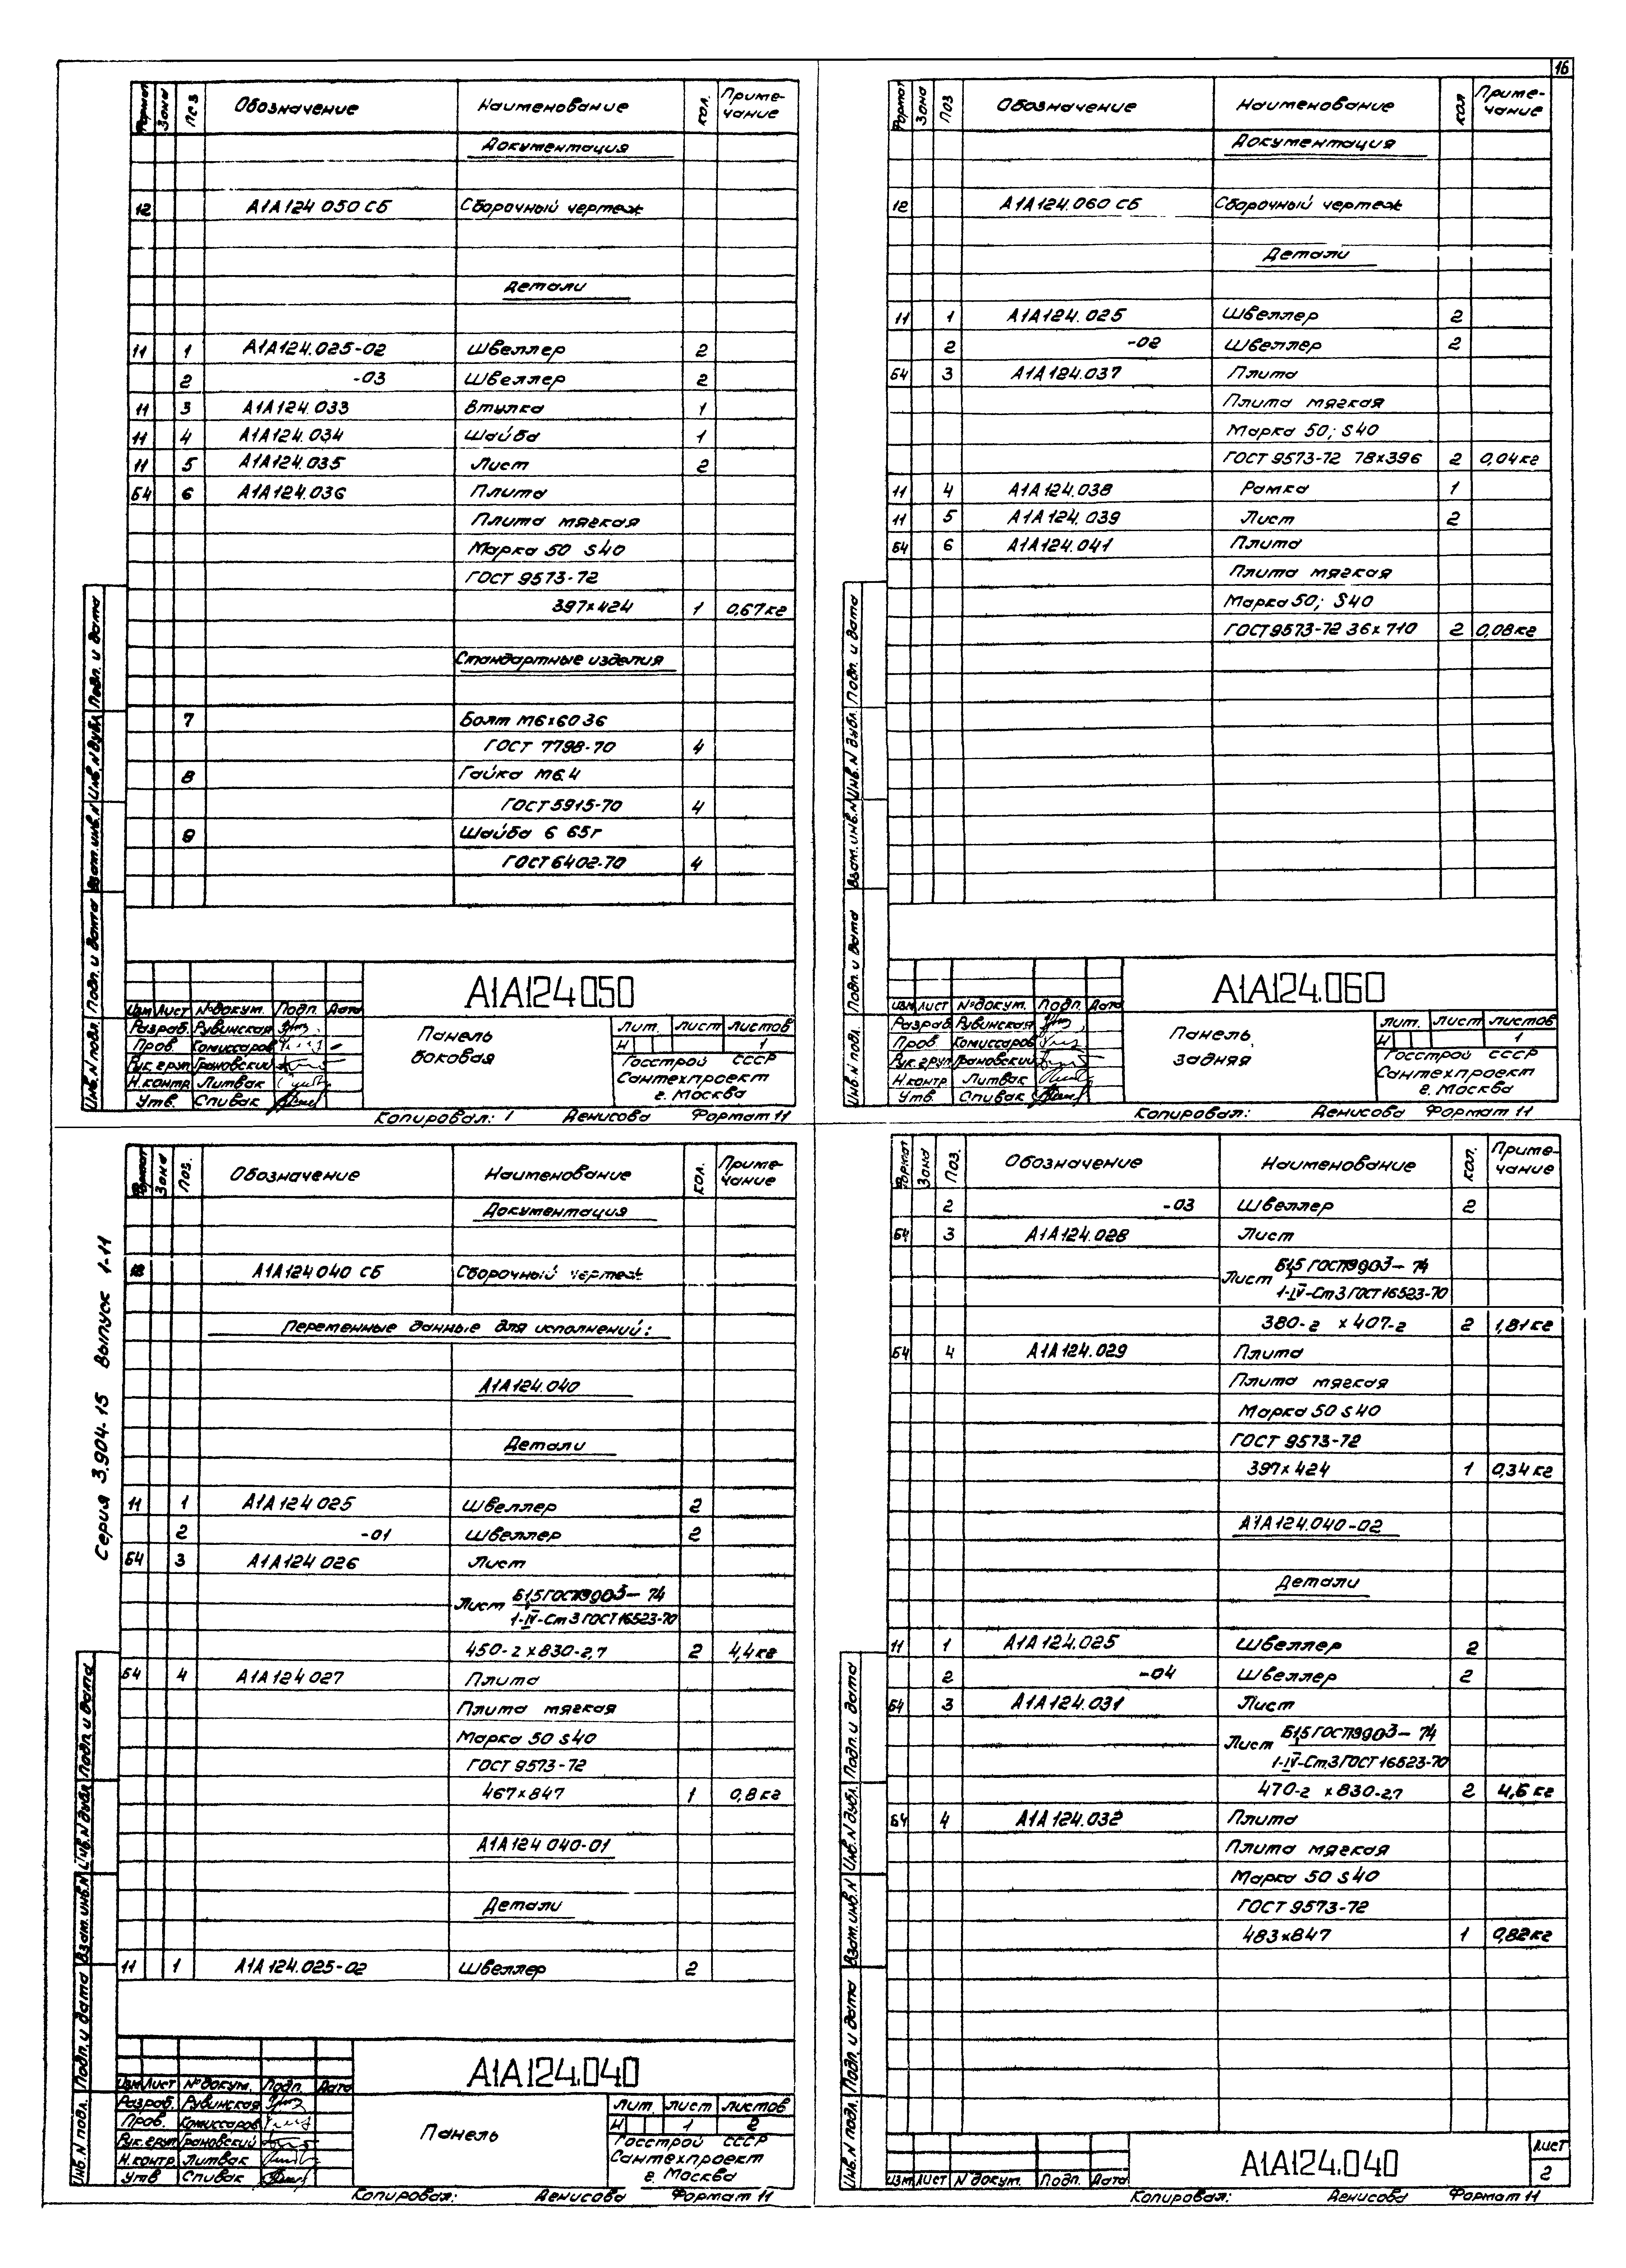 16
Формат Зона Поз Обозначение Наименование кол. Приме-
чание
Документация
12 А1А124 050 СБ Сборочный чертеж
Детали
11 1 А1А124.025-02 Швеллер 2
2 -03 Швеллер 2
11 3 А1А124.033 Втулка 1
11 4 А1А124.034 Шайба 1
11 5 А1А124.035 Лист 2
Б4 6 А1А124.036 Плита
Плита мягкая
Марка 50 S40
ГОСТ 9573-72
397х424 1 0,67кг
Стандартные изделия
7 Болт М6х60 36
ГОСТ 7798-70 4
8 Гайка М6.4
ГОСТ 5915-70 4
9 Шайба 6 65г
ГОСТ 6402-70 4
Инв.N подл. Подп. и дата Взам.инв.N Инв.N дубл. Подп. и дата
А1А124.050
Изм Лист №докум. Подп. Дата
Разраб. Рубинская
Пров. Комиссаров
Рук.груп Грановский
Н.контр Литвак
Утв. Спивак
Панель
боковая
Лит. Лист Листов
И 1
Госстрой СССР
Сантехпроект
г. Москва
Копировал: 1 Денисова Формат 11
Формат Зона Поз Обозначение Наименование кол Приме-
чание
Документация
12 А1А124.060 СБ Сборочный чертеж
Детали
11 1 А1А124.025 Швеллер 2
2 -02 Швеллер 2
Б4 3 А1А124.037 Плита
Плита мягкая
Марка 50; S40
ГОСТ 9573-72 78х396 2 0,04кг
11 4 А1А124.038 Рамка 1
11 5 А1А124.039 Лист 2
Б4 6 А1А124.041 Плита
Плита мягкая
Марка 50; S40
ГОСТ 9573-72 36х710 2 0,08кг
Инв.N подл. Подп. и дата Взам.инв.N Инв.N дубл. Подп. и дата
А1А124.060
Изм Лист №докум. Подп Дата
Разраб Рубинская
Пров Комиссаров
Рук.груп Грановский
Н.контр Литвак
Утв. Спивак
Панель
задняя
Лит. Лист Листов
И 1
Госстрой СССР
Сантехпроект
г. Москва
Копировал: Денисова Формат 11
Серия 3.904-15 Выпуск 1-11
Формат Зона Поз. Обозначение Наименование кол. Приме-
чание
Документация
А1А124 040 СБ Сборочный чертеж
Переменные данные для исполнений:
А1А124.040
Детали
11 1 А1А124 025 Швеллер 2
2 -01 Швеллер 2
Б4 3 А1А124 026 Лист
Лист Б1,5 ГОСТ19903-74
1-IV-Ст 3 ГОСТ 16523-70
450-2 х830-2,7 2 4,4кг
Б4 4 А1А124 027 Плита
Плита мягкая
Марка 50 S40
ГОСТ 9573-72
467х847 1 0,8кг
А1А124 040-01
Детали
11 1 А1А124.025-02 Швеллер 2
Инв.N подл. Подп. и дата Взам.инв.N Инв.N дубл Подп. и дата
А1А124.040
Изм Лист №докум. Подп. Дата
Разраб. Рубинская
Пров. Комиссаров
Рук.груп Грановский
Н.контр Литвак
Утв Спивак
Панель
Лит. Лист Листов
И 1 2
Госстрой СССР
Сантехпроект
г. Москва
Копировал: Денисова Формат 11
Формат Зона Поз. Обозначение Наименование кол. Приме-
чание
2 -03 Швеллер 2
Б4 3 А1А124.028 Лист
Лист Б1,5 ГОСТ19903-74
1-IV-Ст 3 ГОСТ 16523-70
380-2 х 407-2 2 1,81кг
Б4 4 А1А124.029 Плита
Плита мягкая
Марка 50 S40
ГОСТ 9573-72
397х424 1 0,34кг
А1А124.040-02
Детали
11 1 А1А124.025 Швеллер 2
2 -04 Швеллер 2
Б4 3 А1А124.031 Лист
Лист Б1,5 ГОСТ19903-74
1-IV-Ст.3 ГОСТ 16523-70
470-2 х830-2,7 2 4,6кг
Б4 4 А1А124.032 Плита
Плита мягкая
Марка 50 S40
ГОСТ 9573-72
483х847 1 0,82кг
Инв.N подл. Подп. и дата Взам.инв.N Инв.N дубл. Подп. и дата
Изм Лист N докум. Подп. Дата
А1А124.040
Лист
2
Копировал: Денисова Формат 11